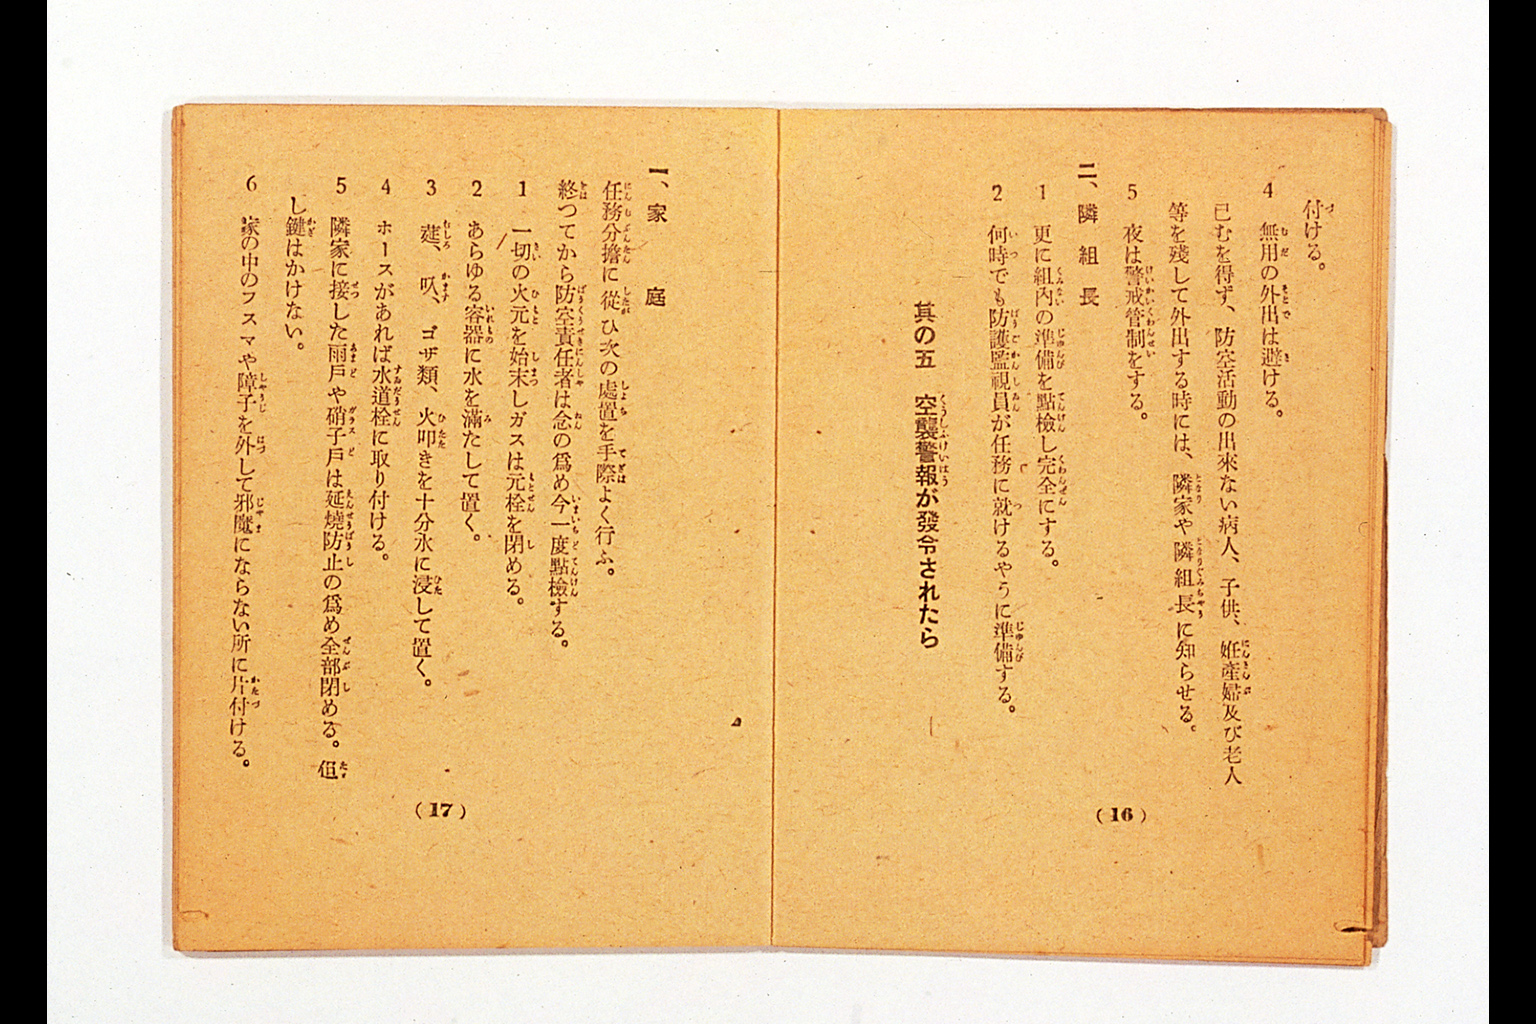 付ける。
4 無用の外出は避ける。
已むを得ず、防空活動の出來ない病人、子供、姙産婦及び老人
等を殘して外出する時には、隣家や隣組長に知らせる。
5 夜は警戒管制をする。
二、隣組長
1 更に組內の準備を點檢し完全にする。
2 何時でも防護監視員が任務に就けるやうに準備する。
其の五 空襲警報が發令されたら
(16)
一、家庭
任務分擔に從ひ次の處置を手際よく行ふ。
終つてから防空責任者は念の爲め今一度點檢する。
1 一切の火元を始末しガスは元栓を閉める。
2 あらゆる容器に水を滿たして置く。
3 莚、叺、ゴザ類、火叩きを十分水に浸して置く。
4 ホースがあれば水道栓に取り付ける。
5 隣家に接した雨戶や硝子戶は延燒防止の爲め全部閉める。伹
し鍵はかけない。
6 家の中のフスマや障子を外して邪魔にならない所に片付ける。
(17)